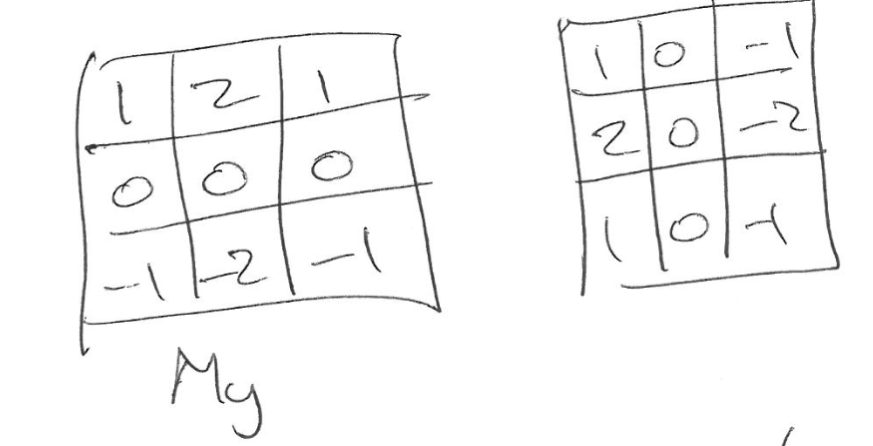 1 2 1
0 0 0
-1 -2 -1
My
1 0 -1
2 0 -2
1 0 -1